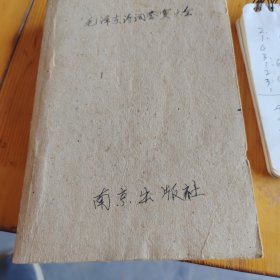 毛泽东诗词鉴赏大全
南京出版社